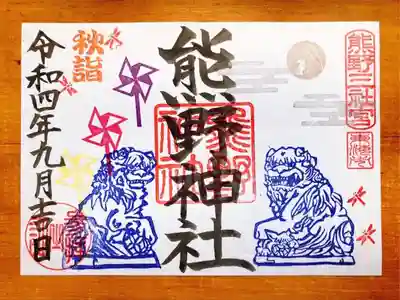 熊野三社宮
熊野神社
秋詣
令和四年九月吉日